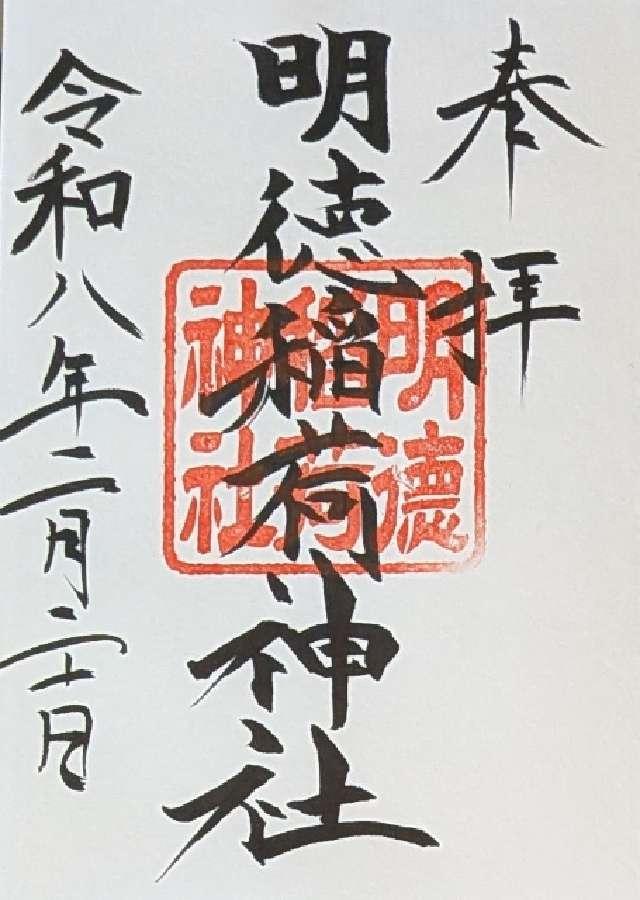 奉拝
明徳稲荷神社
明徳稲荷神社
令和八年二月二十日